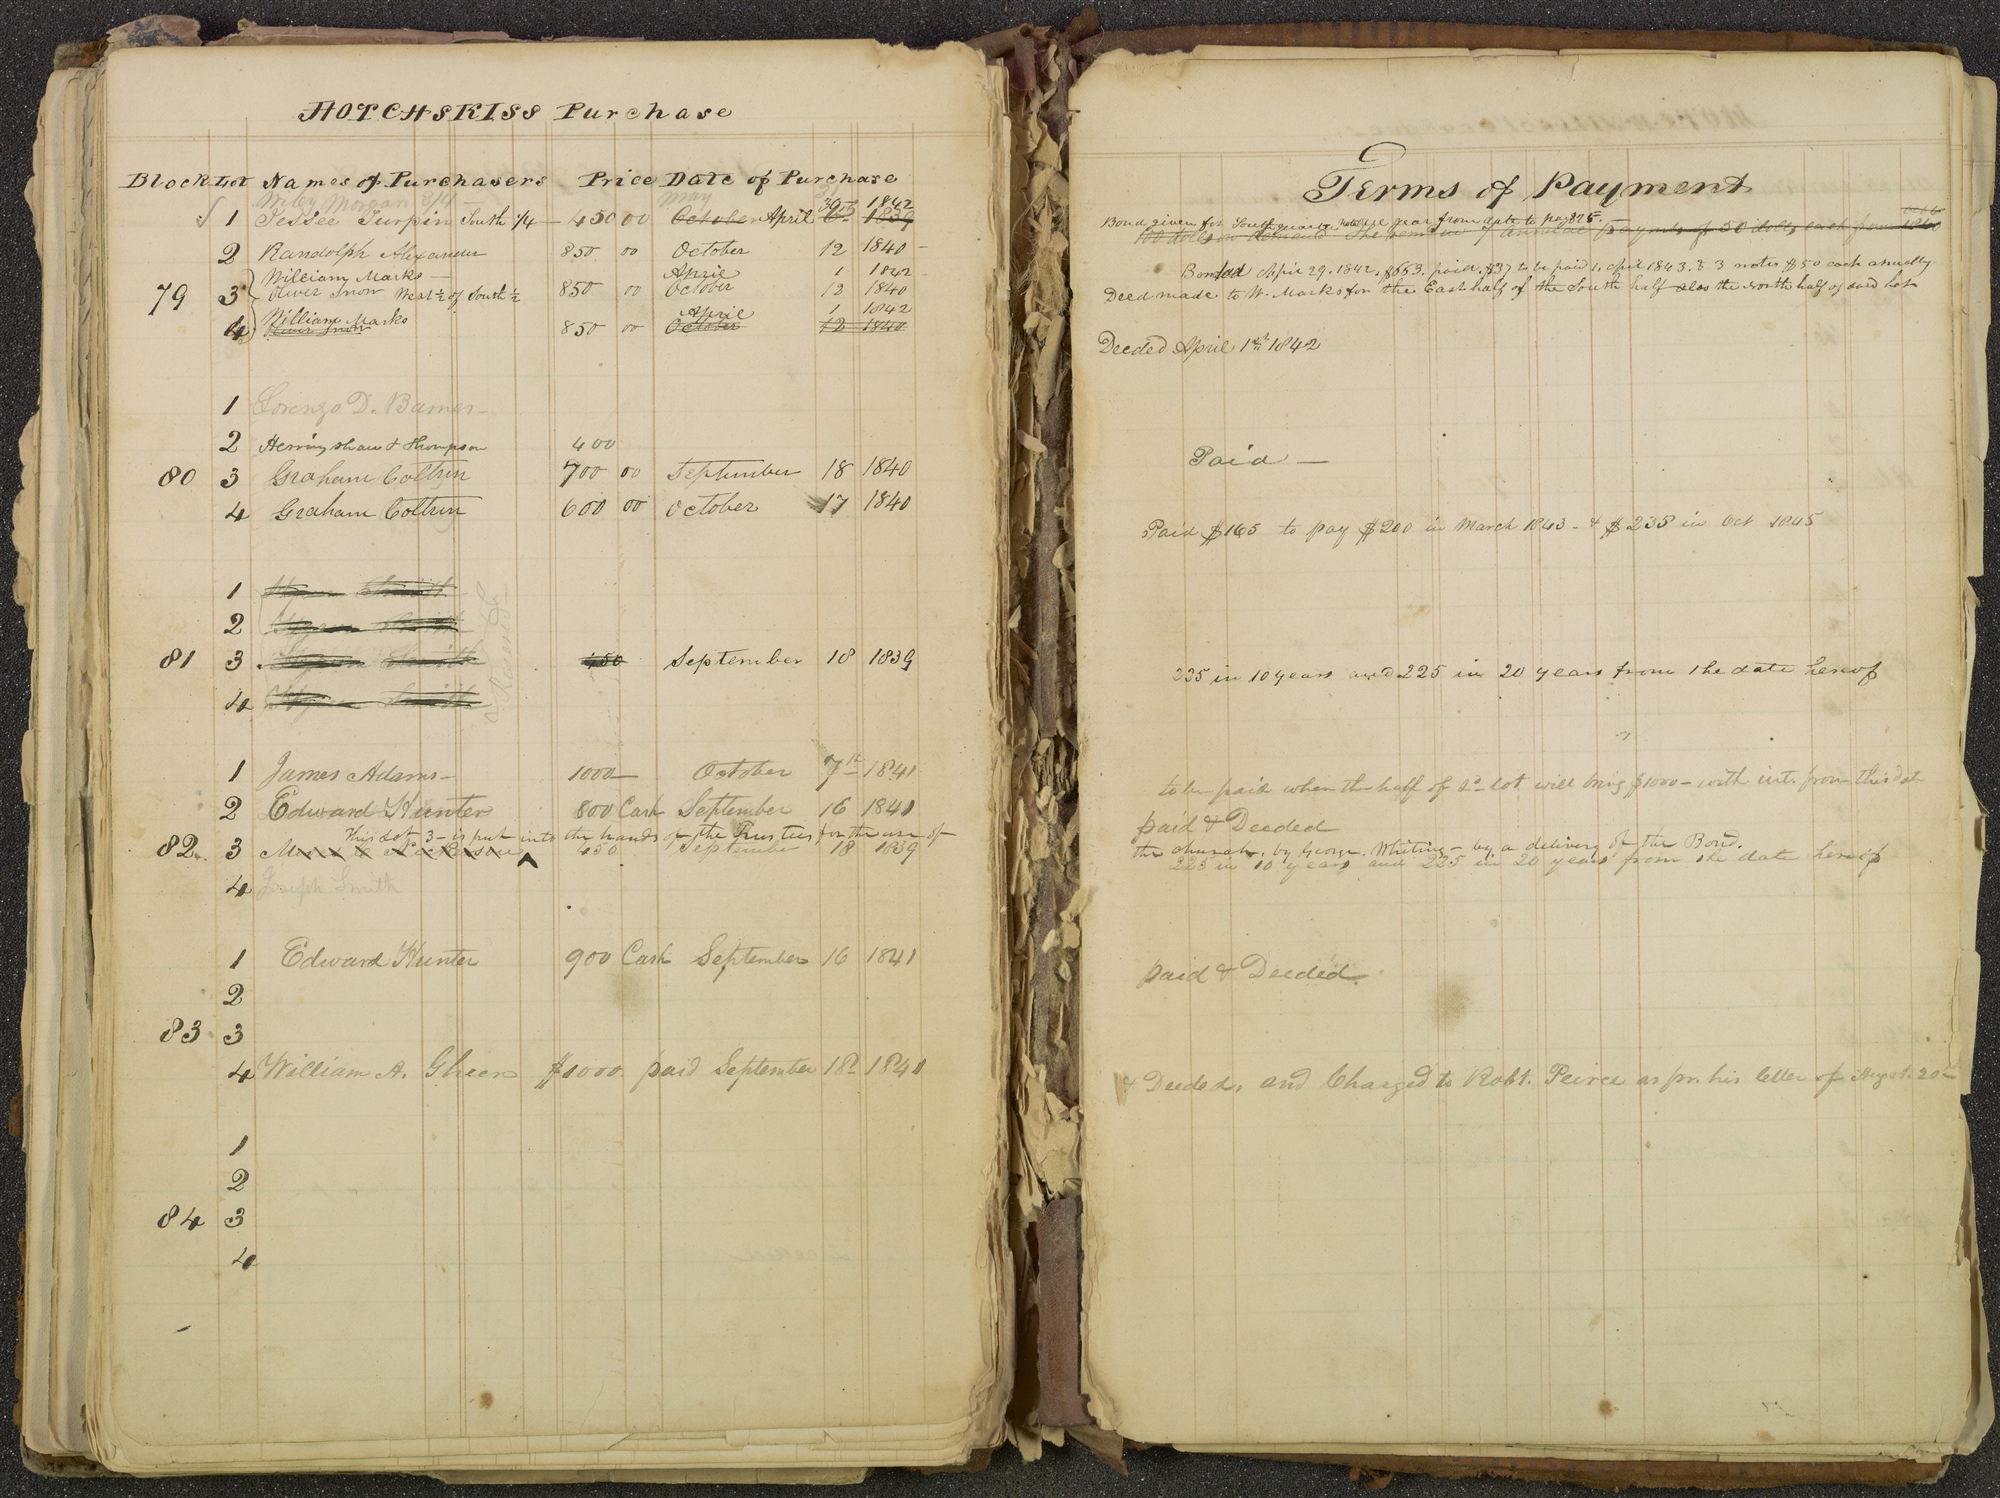 HOTCHSKISS Purchase
Block Lot Names of Purchasers Price Date of Purchase
Wiley Morgan 3/4 - May 1842
1 Jessee Turpin South 1/4 - 450 00 October April 1839
2 Randolph Alexander 850 00 October 12 1840 -
William Marks - April 1 1842
79 3 Oliver Snow West ½ of South ½ 850 00 October 12 1840
William Marks April 1 1842
4 Oliver Snow 850 00 October 12 1840
1 Lorenzo D. Barnes -
2 Herringshaw & Thompson 400
80 3 Graham Coltrin 700 00 September 18 1840
4 Graham Coltrin 600 00 October 17 1840
1 Hyrum Smith
2 Hyrum Smith
81 3 Hyrum Smith 450 September 18 1839
4 Hyrum Smith
1 James Adams - 1000 October 7th 1841
2 Edward Hunter 800 Cash September 16 1841
This Lot 3 - is put into the hands of the Trustees for the use of
82 3 450 September 18 1839
4 Joseph Smith
1 Edward Hunter 900 Cash September 16 1841
2
83 3
4 William A. Gheen $1000 paid September 18 1840
1
2
84 3
4
Terms of Payment
Bond given for South quarter note one year from date to pay $25.
100 dolls on demand The rem in 7 annual payments of 50 dolls each from
Bonded April 29. 1842. $663. paid. $37 to be paid 1. April 1843. & 3 notes $50 each anually
Deed made to W. Marks for the East half of the South half also the North half of said lot
Deeded April 1st 1842
Paid -
Paid $165 to pay $200 in March 1843 - & $235 in Oct 1845
225 in 10 years and 225 in 20 years from the date hereof
to be paid when the half of sd lot will bring $1000 - with int. from this date
paid & Deeded
the church, by George Whiting - by a delivery of the Bond.
225 in 10 years and 225 in 20 years from the date hereof
paid & Deeded
& Deeded, and Charged to Robt. Peirce as pr. his letter of Augst. 20th